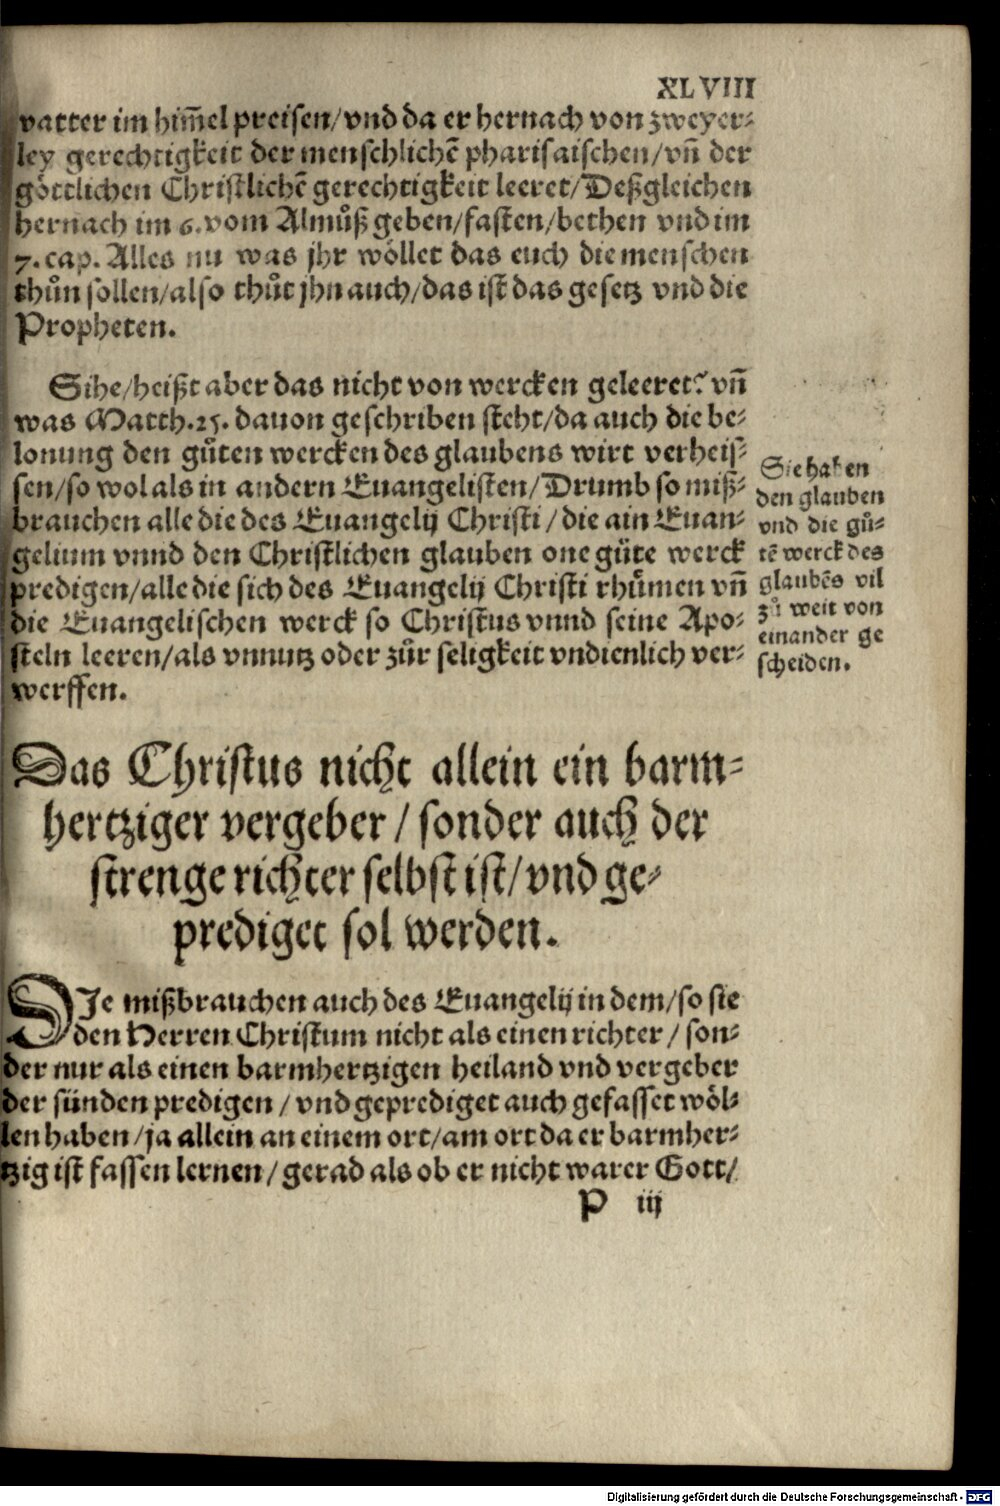 XLVIII
vatter im him̃el preisen/vnd da er hernach von zweyer⸗
ley gerechtigkeit der menschlichẽ pharisaischen/vñ der
göttlichen Christlichẽ gerechtigkeit leeret/Deßgleichen
hernach im 6. vom Almůß geben/fasten/bethen vnd im
7. cap. Alles nu was jhr wöllet das euch die menschen
thůn sollen/also thůt jhn auch/das ist das gesetz vnd die
Propheten.
Sihe/heißt aber das nicht von wercken geleeret? vñ
was Matth. 25. dauon geschriben steht/da auch die be⸗
lonung den gůten wercken des glaubens wirt verheis⸗
sen/so wol als in andern Euangelisten/Drumb so miß⸗
brauchen alle die des Euangelij Christi/die ain Euan⸗
gelium vnnd den Christlichen glauben one gůte werck
predigen/alle die sich des Euangelij Christi rhůmen vñ
die Euangelischen werck so Christus vnnd seine Apo⸗
steln leeren/als vnnutz oder zůr seligkeit vndienlich ver⸗
werffen.
Sie haben
den glauben
vnd die gů⸗
tẽ werck des
glaubẽs vil
zů weit von
einander ge
scheiden.
Das Christus nicht allein ein barm⸗
hertziger vergeber/sonder auch der
strenge richter selbst ist/vnd ge⸗
prediget sol werden.
SJe mißbrauchen auch des Euangelij in dem/so sie
den Herren Christum nicht als einen richter/son⸗
der nur als einen barmhertzigen heiland vnd vergeber
der sünden predigen/vnd geprediget auch gefasset wöl⸗
len haben/ja allein an einem ort/am ort da er barmher⸗
tzig ist fassen lernen/gerad als ob er nicht warer Gott/
P iij
Digitalisierung gefördert durch die Deutsche Forschungsgemeinschaft - DFG